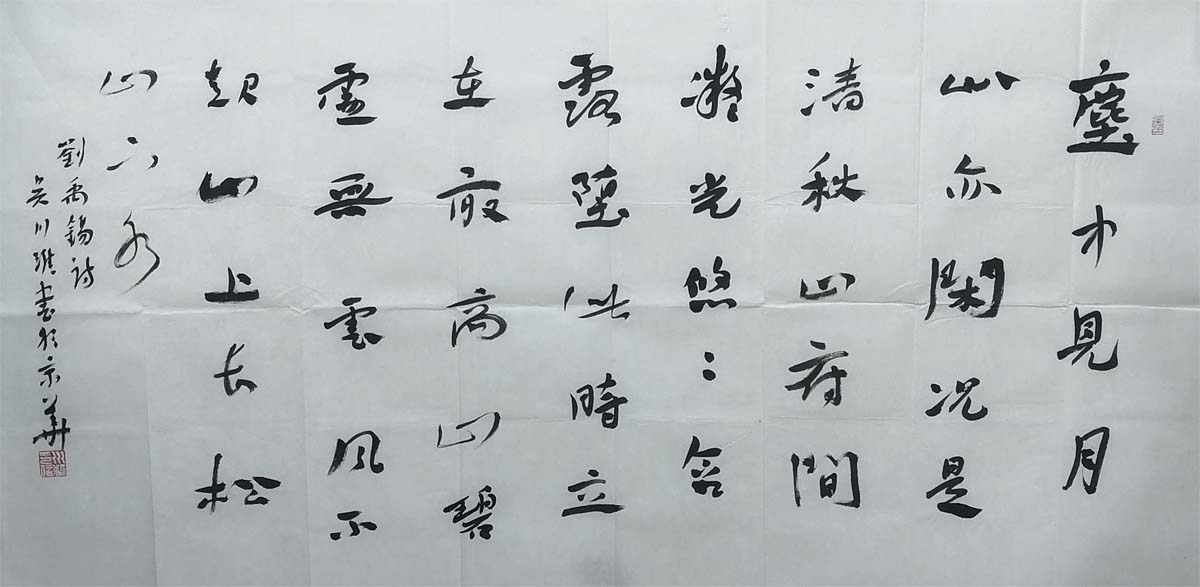 塵中見月
心亦閑況是
清秋山府間
凝光悠〻含
露墜此時立
在最高山碧
虛無雲風不
起山上长松
山下水
劉禹錫詩
吳川書於京華